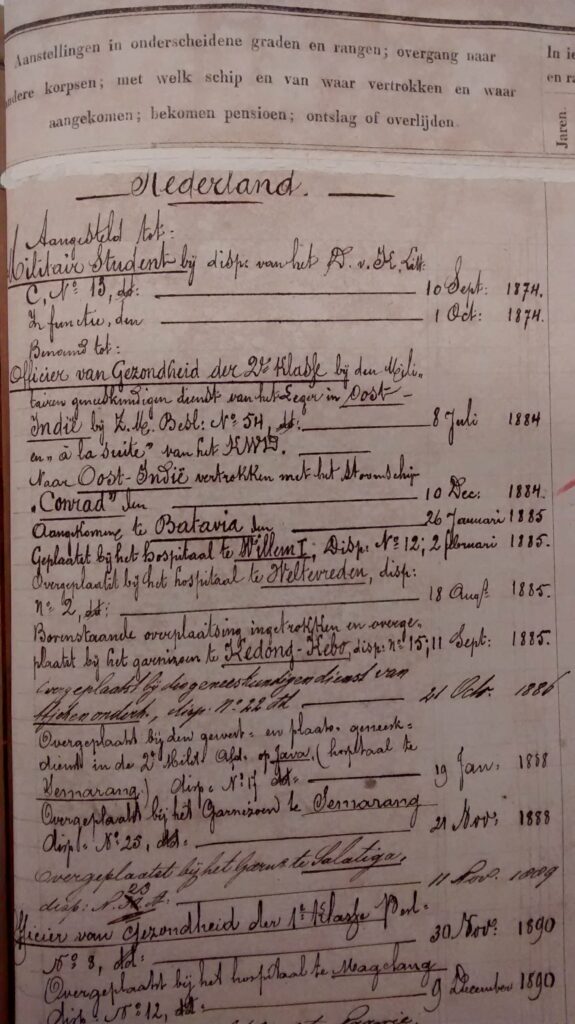 Aanstellingen in onderscheidene graden en rangen; overgang naar
andere korpsen; met welk schip en van waar vertrokken en waar
aangekomen; bekomen pensioen; ontslag of overlijden.
In ie
en ra
Jaren.
Nederland.
Aangesteld tot:
Militair Student bij disp: van het D. v. K. Litt:
C, No 13, dd: 10 Sept: 1874.
In functie, den 1 Oct: 1874.
Benoemd tot:
Officier van Gezondheid der 2de Klasse bij den Mili-
tairen geneeskundigen dienst van het Leger in Oost-
Indië bij Z. M. Besl: No 54, dd: 8 Juli 1884
en "à la suite" van het
Naar Oost-Indië vertrokken met het stoomschip
"Conrad" den 10 Dec: 1884.
Aangekomen te Batavia den 26 Januari 1885
Geplaatst bij het hospitaal te Willem I, Disp: No 12; 2 februari 1885.
Overgeplaatst bij het hospitaal te Weltevreden, disp:
No 2, dd: 18 Augs 1885.
Bovenstaande overplaatsing ingetrokken en overge-
plaatst bij het garnizoen te Kedong-Kebo, disp: No 15; 11 Sept: 1885.
Overgeplaatst bij den geneeskundigen dienst van
disp. No 22 dd 21 Octr. 1886
Overgeplaatst bij den gewest- en plaats. geneesk-
dienst in de 2e Milit. Afd. op Java, (hospitaal te
Semarang) disp: No 17 dd: 19 Jan: 1888
Overgeplaatst bij het Garnizoen te Semarang
disp: No 25, dd: 21 Nov: 1888
Overgeplaatst bij het Garns te Salatiga,
disp: N. 23 A. 11 Nov. 1889
Officier van Gezondheid der 1e Klasse Besl:
No 8, dd: 30 Nov: 1890
Overgeplaatst bij het hospitaal te Magelang
disp: No 12, dd: 9 December 1890